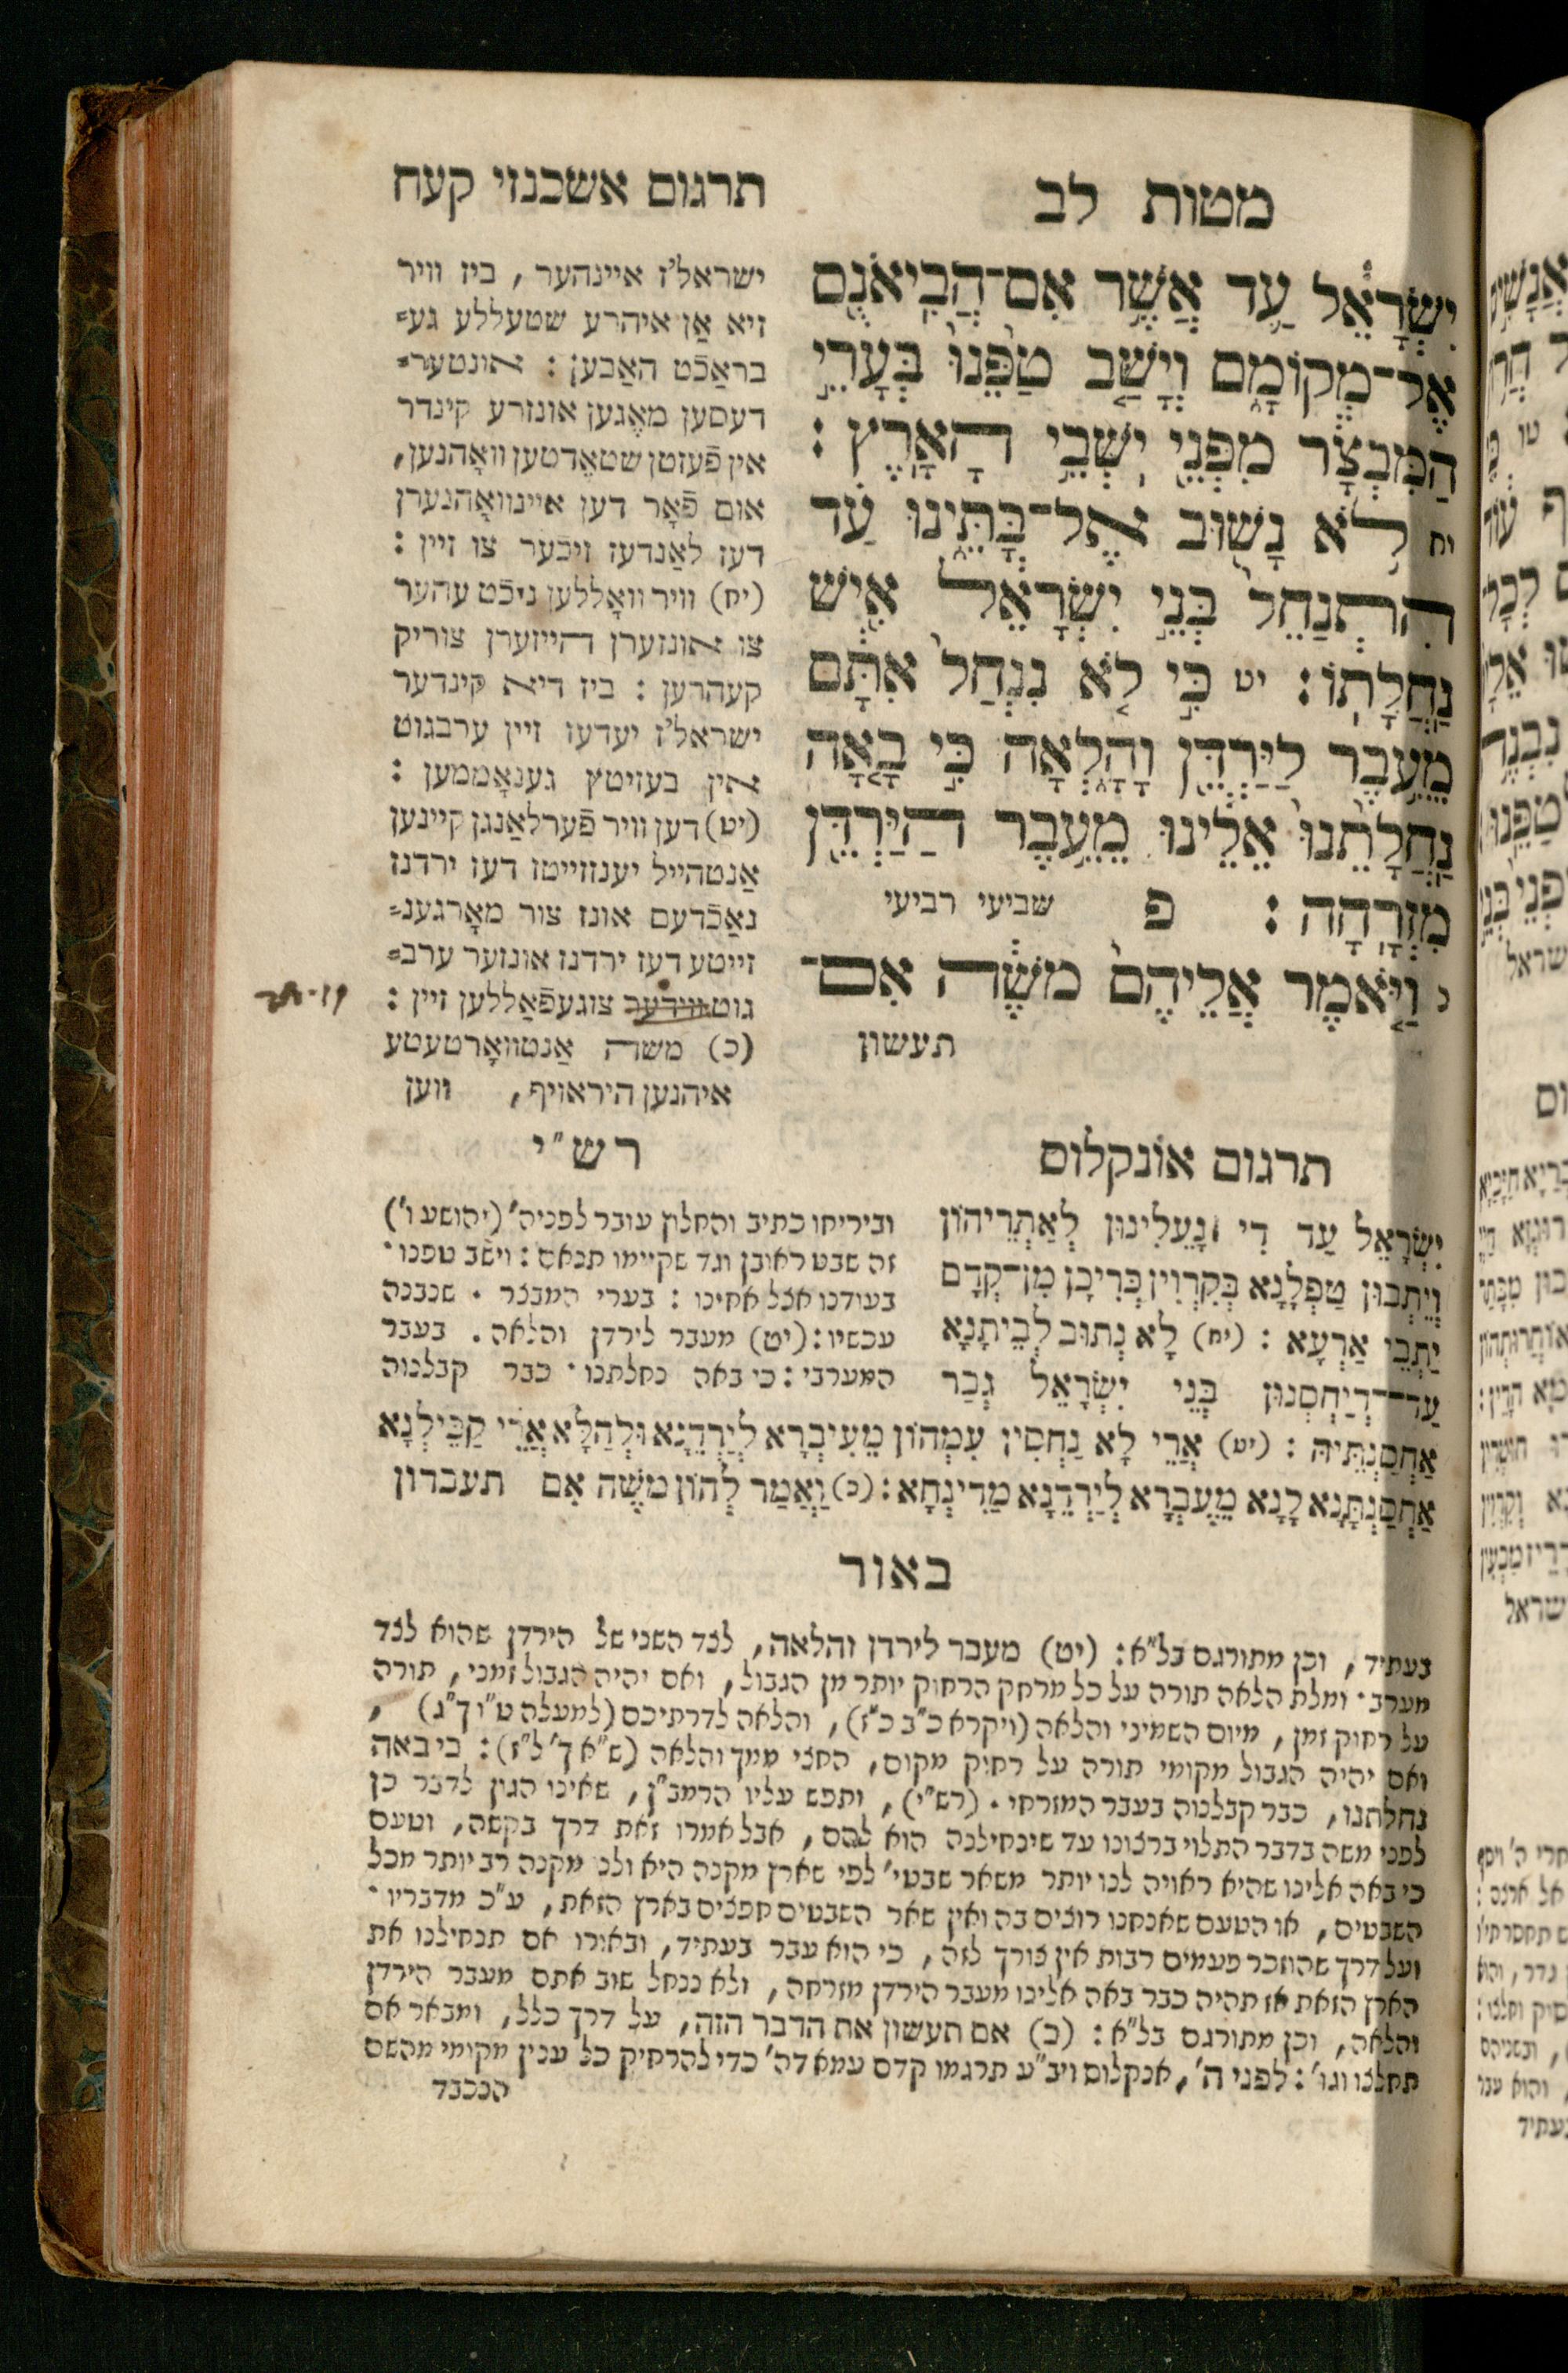 מטות לב
יִשְׂרָאֵל עַד אֲשֶׁר אִם־הֲבִיאֹנֻם
אֶל־מְקוֹמָם וְיָשַׁב טַפֵּנוּ בְּעָרֵי
הַמִּבְצָר מִפְּנֵי יֹשְׁבֵי הָאָרֶץ :
יח לֹא נָשׁוּב אֶל־בָּתֵּינוּ עַד
הִתְנַחֵל בְּנֵי יִשְׂרָאֵל אִישׁ
נַחֲלָתוֹ : יט כִּי לֹא נִנְחַל אִתָּם
מֵעֵבֶר לַיַּרְדֵּן וָהָלְאָה כִּי בָאָה
נַחֲלָתֵנוּ אֵלֵינוּ מֵעֵבֶר הַיַּרְדֵּן
מִזְרָחָה : פ שביעי רביעי
כ וַיֹּאמֶר אֲלֵיהֶם מֹשֶׁה אִם־
תעשון
תרגום אשכנזי קעח
ישראל'ז איינהער , ביז וויר
זיא אַן איהרע שטעללע גע=
בראַכֿט האַבען : אונטער=
דעסען מאֶגען אונזרע קינדר
אין פֿעזטן שטאֶדטען וואָהנען,
אום פֿאָר דען איינוואָהנערן
דעז לאַנדעז זיכֿער צו זיין :
(יח) וויר וואָללען ניכֿט עהער
צו אונזערן הייזערן צוריק
קעהרען : ביז דיא קינדער
ישראל'ז יעדעז זיין ערבגוט
אין בעזיטץ גענאָממען :
(יט) דען וויר פֿערלאַנגן קיינען
אַנטהייל יענזייטז דעז ירדנז
נאַכֿדעם אונז צור מאָרגענ=
זייטע דעז ירדנז אונזער ערב=
גוט ווידער צוגעפֿאַללען זיין :
(כ) משה אַנטוואָרטעטע
איהנען היראויף, ווען
תרגום אונקלוס
יִשְׂרָאֵל עַד דִי נָעֵלִינוּן לְאַתְרֵיהוֹן
וְיֵתְבוּן טַפְלָנָא בְּקִרְוִין כְּרִיכָן מִן־קְדָם
יַתְבֵי אַרְעָא : (יח) לָא נְתוּב לְבֵיתָנָא
עַד־דְיַחְסְנוּן בְּנֵי יִשְׂרָאֵל גְבַר
אַחְסַנְתֵּיהּ : (יט) אֲרֵי לָא נַחְסִין עִמְהוֹן מֵעִיבְרָא לְיַרְדְנָא וּלְהַלָּא אֲרֵי קַבֵּילְנָא
אַחְסַנְתָּנָא לָנָא מֵעִבְרָא לְיַרְדְנָא מַדִינְחָא : (כ) וַאֲמַר לְהוֹן מֹשֶׁה אִם תעברון
רש"י
וביריחו כתיב והחלוץ עובר לפני ה' (יהושע ו')
זה שבט ראובן וגד שקיימו תנאם : וישב טפנו ·
בעודנו אצל אחינו : בערי המבצר · שנבנה
עכשיו : (יט) מעבר לירדן והלאה . בעבר
המערבי : כי באה נחלתנו · כבר קבלנוה
באור
בעתיד , וכן מתורגם בל"א : (יט) מעבר לירדן והלאה , לצד השני של הירדן שהוא לצד
מערב · ומלת הלאה תורה על כל מרחק הרחוק יותר מן הגבול , ואם יהיה הגבול זמני , תורה
על רחוק זמן , מיום השמיני והלאה (ויקרא כ"ב כ"ז) , והלאה לדרתיכם (למעלה ט"ו ך"ג) ,
ואם יהיה הגבול מקומי תורה על רחוק מקום , החצי ממך והלאה (ש"א ך' ל"ז) : כי באה
נחלתנו , כבר קבלנוה בעבר המזרחי . (רש"י) , ותפש עליו הרמב"ן , שאינו הגון לדבר כן
לפני משה בדבר התלוי ברצונו עד שינחילנה הוא להם , אבל אמרו זאת דרך בקשה , וטעם
כי באה אלינו שהיא ראויה לנו יותר משאר שבטי' לפי שארץ מקנה היא ולנו מקנה רב יותר מכל
השבטים , או הטעם שאנחנו רוצים בה ואין שאר השבטים חפצים בארץ הזאת , ע"כ מדבריו ·
ועל דרך שהוזכר פעמים רבות אין צורך לזה , כי הוא עבר בעתיד , ובאורו אם תנחילנו את
הארץ הזאת אז תהיה כבר באה אלינו מעבר הירדן מזרחה , ולא ננחל שוב אתם מעבר הירדן
והלאה , וכן מתורגם בל"א : (כ) אם תעשון את הדבר הזה , על דרך כלל , ומבאר אם
תחלצו וגו' : לפני ה' , אנקלוס ויב"ע תרגמו קדם עמא דה' כדי להרחיק כל ענין מקומי מהשם
הנכבד